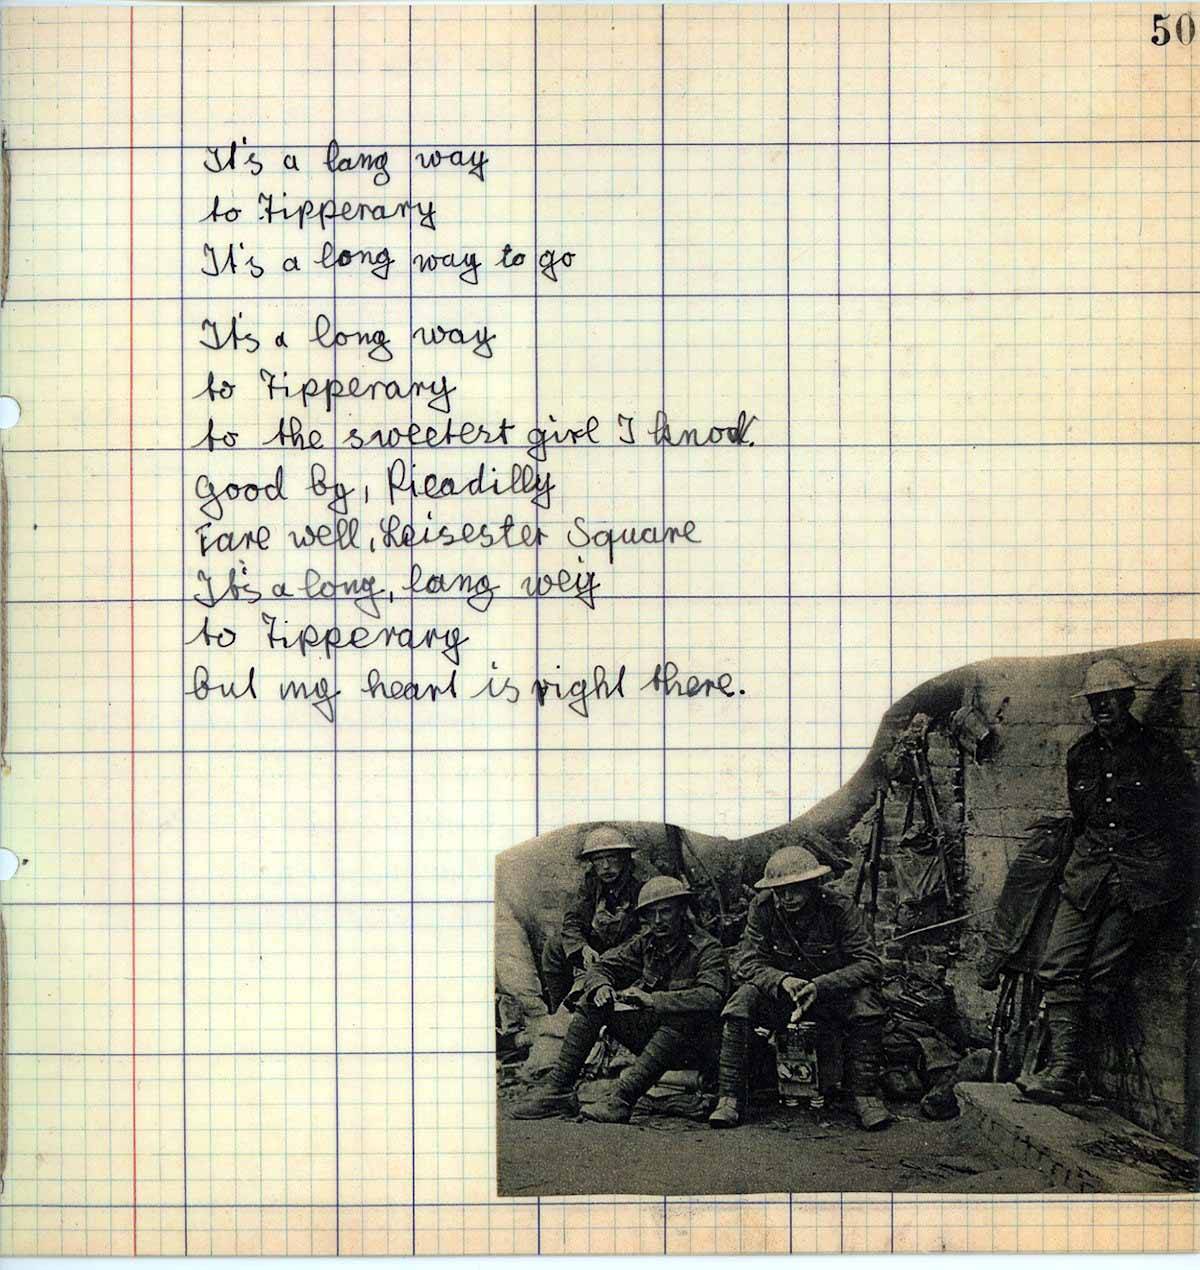 50
It's a lang way
to Tipperary
It's a long way to go
It's a long way
to Tipperary
to the sweetest girl I
Good by, Picadilly
Fare well, Leisester Square
It's a long, lang weiy
to Tipperary
but my heart is right there.